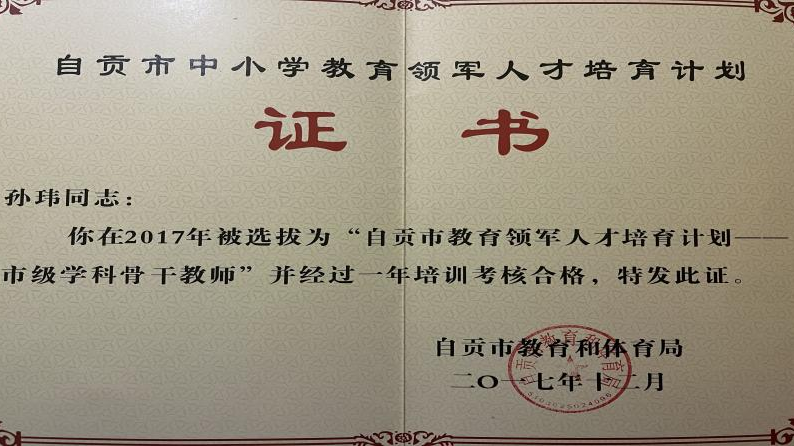 自贡市中小学教育领军人才培育计划
证 书
孙玮同志：
你在2017年被选拔为“自贡市教育领军人才培育计划——
市级学科骨干教师”并经过一年培训考核合格，特发此证。
自贡市教育和体育局
二〇一七年十二月
自贡市教育和体育局